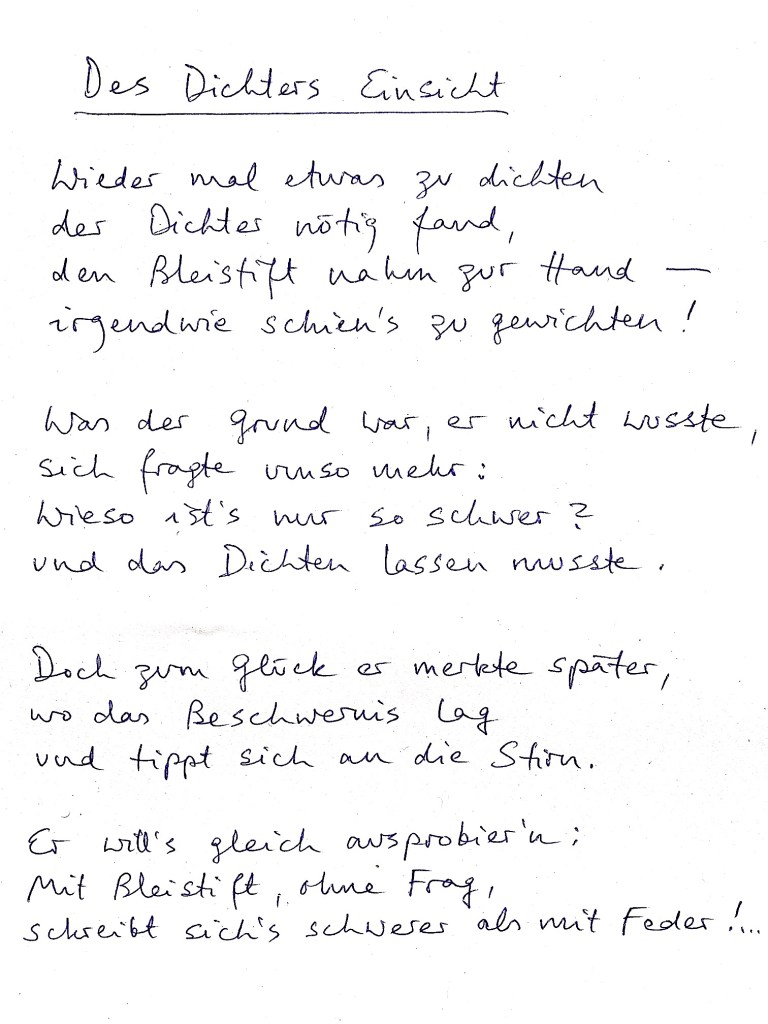 Des Dichters Einsicht
Wieder mal etwas zu dichten
der Dichter nötig fand,
den Bleistift nahm zur Hand —
irgendwie schien's zu gewichten!
Was der Grund war, er nicht wusste,
sich fragte umso mehr:
Wieso ist's nur so schwer?
und das Dichten lassen musste.
Doch zum Glück er merkte später,
wo das Beschwernis lag
und tippt sich an die Stirn.
Er will's gleich ausprobier'n:
Mit Bleistift, ohne Frag,
schreibt sich's schwerer als mit Feder!...